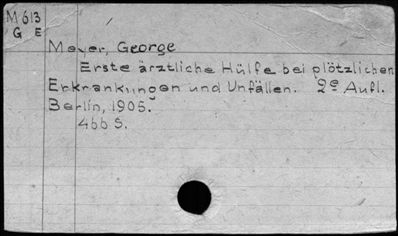 M 613
G E
Meyer, George
Erste ärztliche Hülfe bei plötzlichen
Erkrankungen und Unfällen. 2e Aufl.
Berlin, 1905.
466 S.